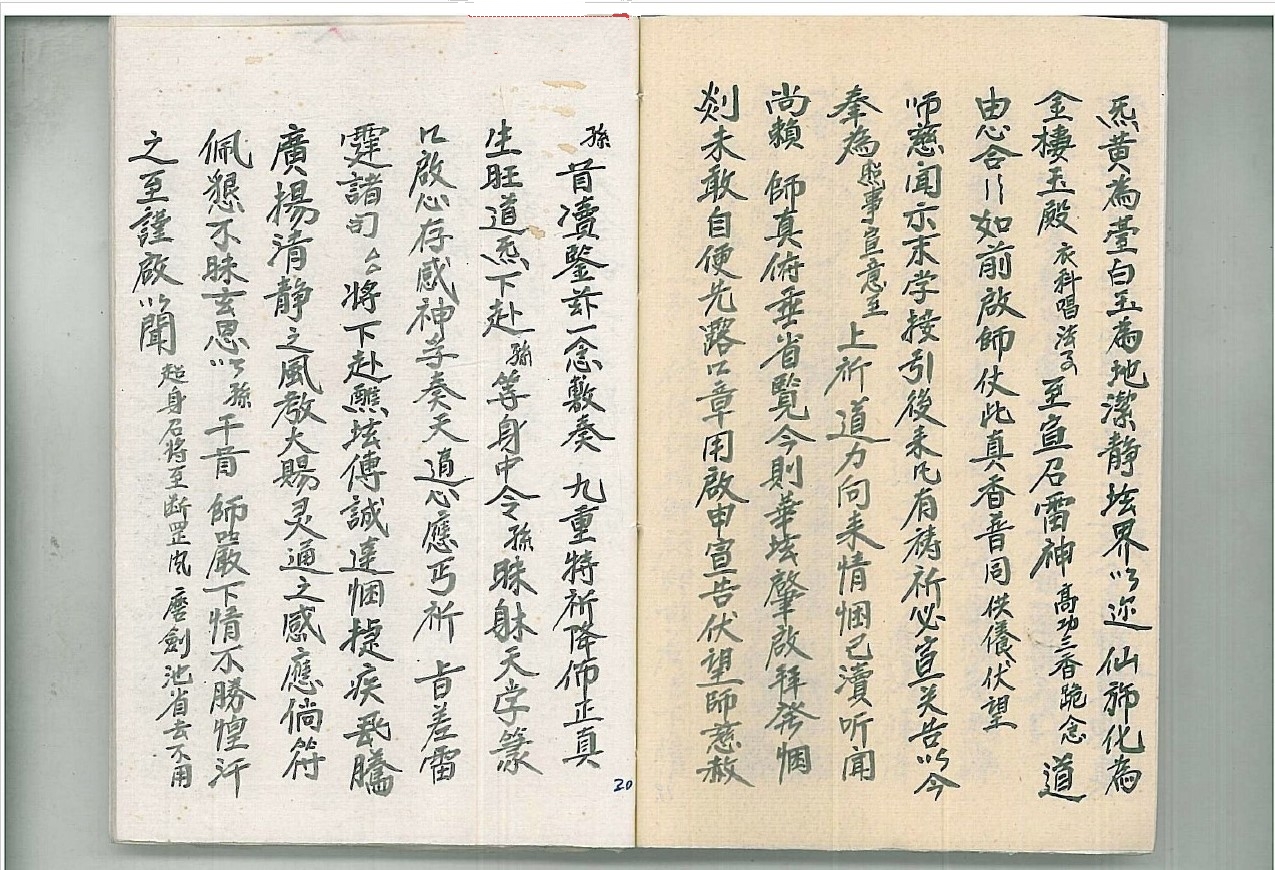 炁黄為臺白玉為地潔静坛界以迎仙旆化為
金樓玉殿 衣科唱法事 至宣召雷神 高功三香跪念 道
由心合 如前啟師仗此真香普同供儀伏望
师慈闻示末学接引後来凡有祷祈必宣关告以今
奉為 照事宣意至 上祈 道力向来情悃已瀆听闻
尚賴 師真俯垂省覧今則華坛肇啟拜發悃
剡未敢自便先露口章用啟申宣告伏望師慈赦
孫首瀆鑒玆一念敷奏 九重特祈降佈正真
生旺道炁下赴孫等身中令孫昧躰天学篆
口啟心存感神孚奏天道心應丐祈 旨差雷
霆諸司厶厶將下赴醮坛傳誠達悃捷疾飛騰
廣揚清静之風教大賜灵通之感應倘符
佩懇不昧玄恩以孫干冒 師嚴下情不勝惶汗
之至謹啟以聞 起身召将至断罡 磨劍池省去不用
20